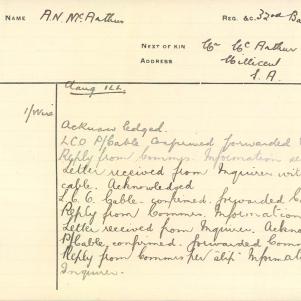 NAME A.N. McArthur REG. &C. 32nd Ba
NEXT OF KIN Mr McArthur
ADDRESS Millicent
S.A.
1/Wire
Acknowledged.
LCO P/Cable Confirmed forwarded
Reply from Commrs. Information se
Letter received from Inquirer wit
cable. Acknowledged
Cable. confirmed. forwarded C
Reply from Commrs. Information
Letter received from Inquirer. Ackno
P/Cable confirmed. forwarded Comm
Reply from Commrs per slip Informat
Inquirer.